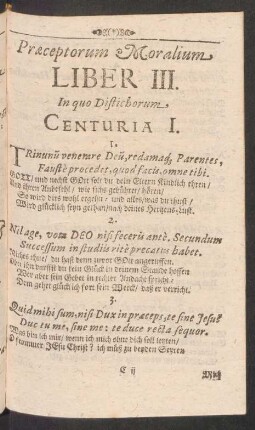 Præceptorum Moralium
LIBER III.
In quo Distichorum
CENTURIA I.
1.
TRinunũ venerare Deũ, redamaq́, Parentes,
Faustè procedet, quod facis, omne tibi.
GOTT / und nechst GOtt solt du dein Eltern kindlich ehren /
Und ihren Anbefehl / wie sichs gebühret / hören /
So wird dirs wohl ergehn / und alles, was du thust /
Wird glücklich seyn gethan / nach deines Hertzens-Lust.
2.
Nil age, vota DEO nisi feceris antè. Secundum
Successum in studiis ritè precatus habet.
Nichts thue / du hast denn zuvor GOtt angeruffen.
Wer aber sein Gebet in rechter Andacht spricht /
Dem gehet glück ich fort sein Werck / daß er verricht.
3.
Quid mihi sum, nisi Dux in præceps, te sine Jesu?
Duc tu me, sine me: te duce recta sequor.
Was bin ich mir / wenn ich mich ohne dich soll leiten /
O frommer JEsu Christ? ich müß zu beyden Seyten
C ij